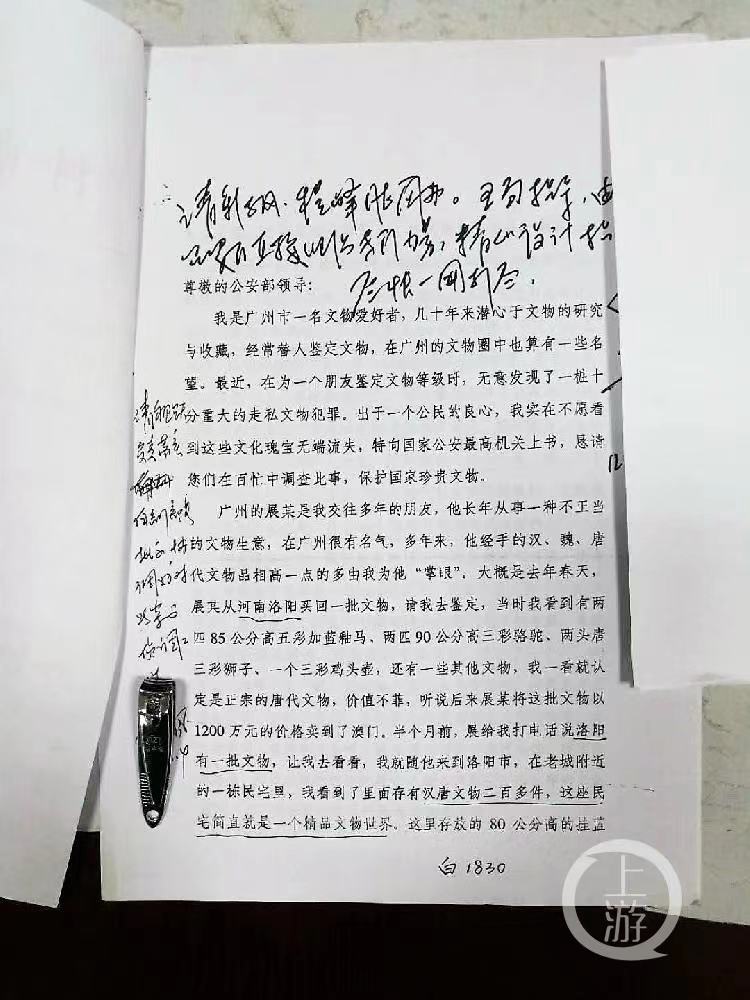 尽快一网打尽.
尊敬的公安部领导:
我是广州市一名文物爱好者，几十年来潜心于文物的研究
与收藏，经常替人鉴定文物，在广州的文物圈中也算有一些名
望。最近，在为一个朋友鉴定文物等级时，无意发现了一桩十
分重大的走私文物犯罪。出于一个公民的良心，我实在不愿看
到这些文化瑰宝无端流失，特向国家公安最高机关上书，恳请
您们在百忙中调查此事，保护国家珍贵文物。
广州的展某是我交往多年的朋友，他长年从事一种不正当
的文物生意，在广州很有名气，多年来，他经手的汉、魏、唐
代文物品相高一点的多由我为他“掌眼”。大概是去年春天，
展某从河南洛阳买回一批文物，请我去鉴定，当时我看到有两
匹85公分高五彩加蓝釉马、两匹90公分高三彩骆驼、两头唐
三彩狮子、一个三彩鸡头壶，还有一些其他文物，我一看就认
定是正宗的唐代文物，价值不菲，听说后来展某将这批文物以
1200万元的价格卖到了澳门。半个月前，展给我打电话说洛阳
有一批文物，让我去看看，我就随他来到洛阳市，在老城附近
的一栋民宅里，我看到了里面存有汉唐文物二百多件，这座民
宅简直就是一个精品文物世界。这里存放的80公分高的挂蓝
白1830
上游